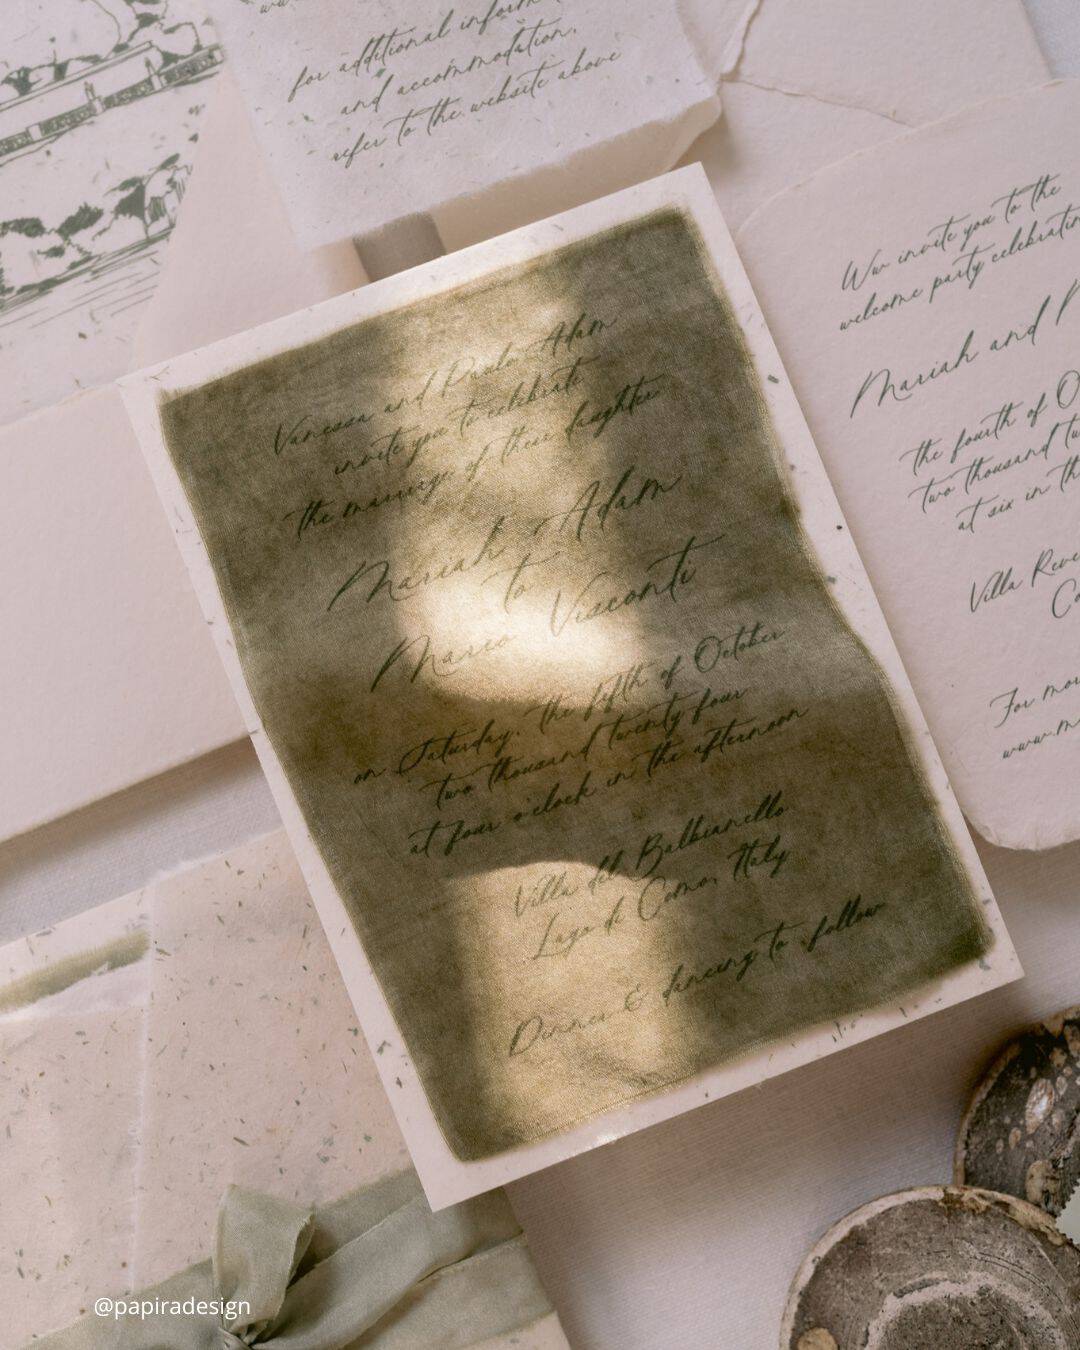 for additional inform
and accommodation,
refer to the website above
We invite you to the
welcome party celebratin
Mariah and
the fourth of O
two thousand tw
at six in th
Villa Reve
Co
For mor
www.m
Vanessa and Paulo Adam
invite you to celebrate
the marriage of their daughter
Mariah Adam
to
Marco Visconti
on Saturday, the fifth of October
two thousand twenty four
at four o'clock in the afternoon
Villa del Balbianello
Lago di Como, Italy
Dinner & dancing to follow
@papiradesign